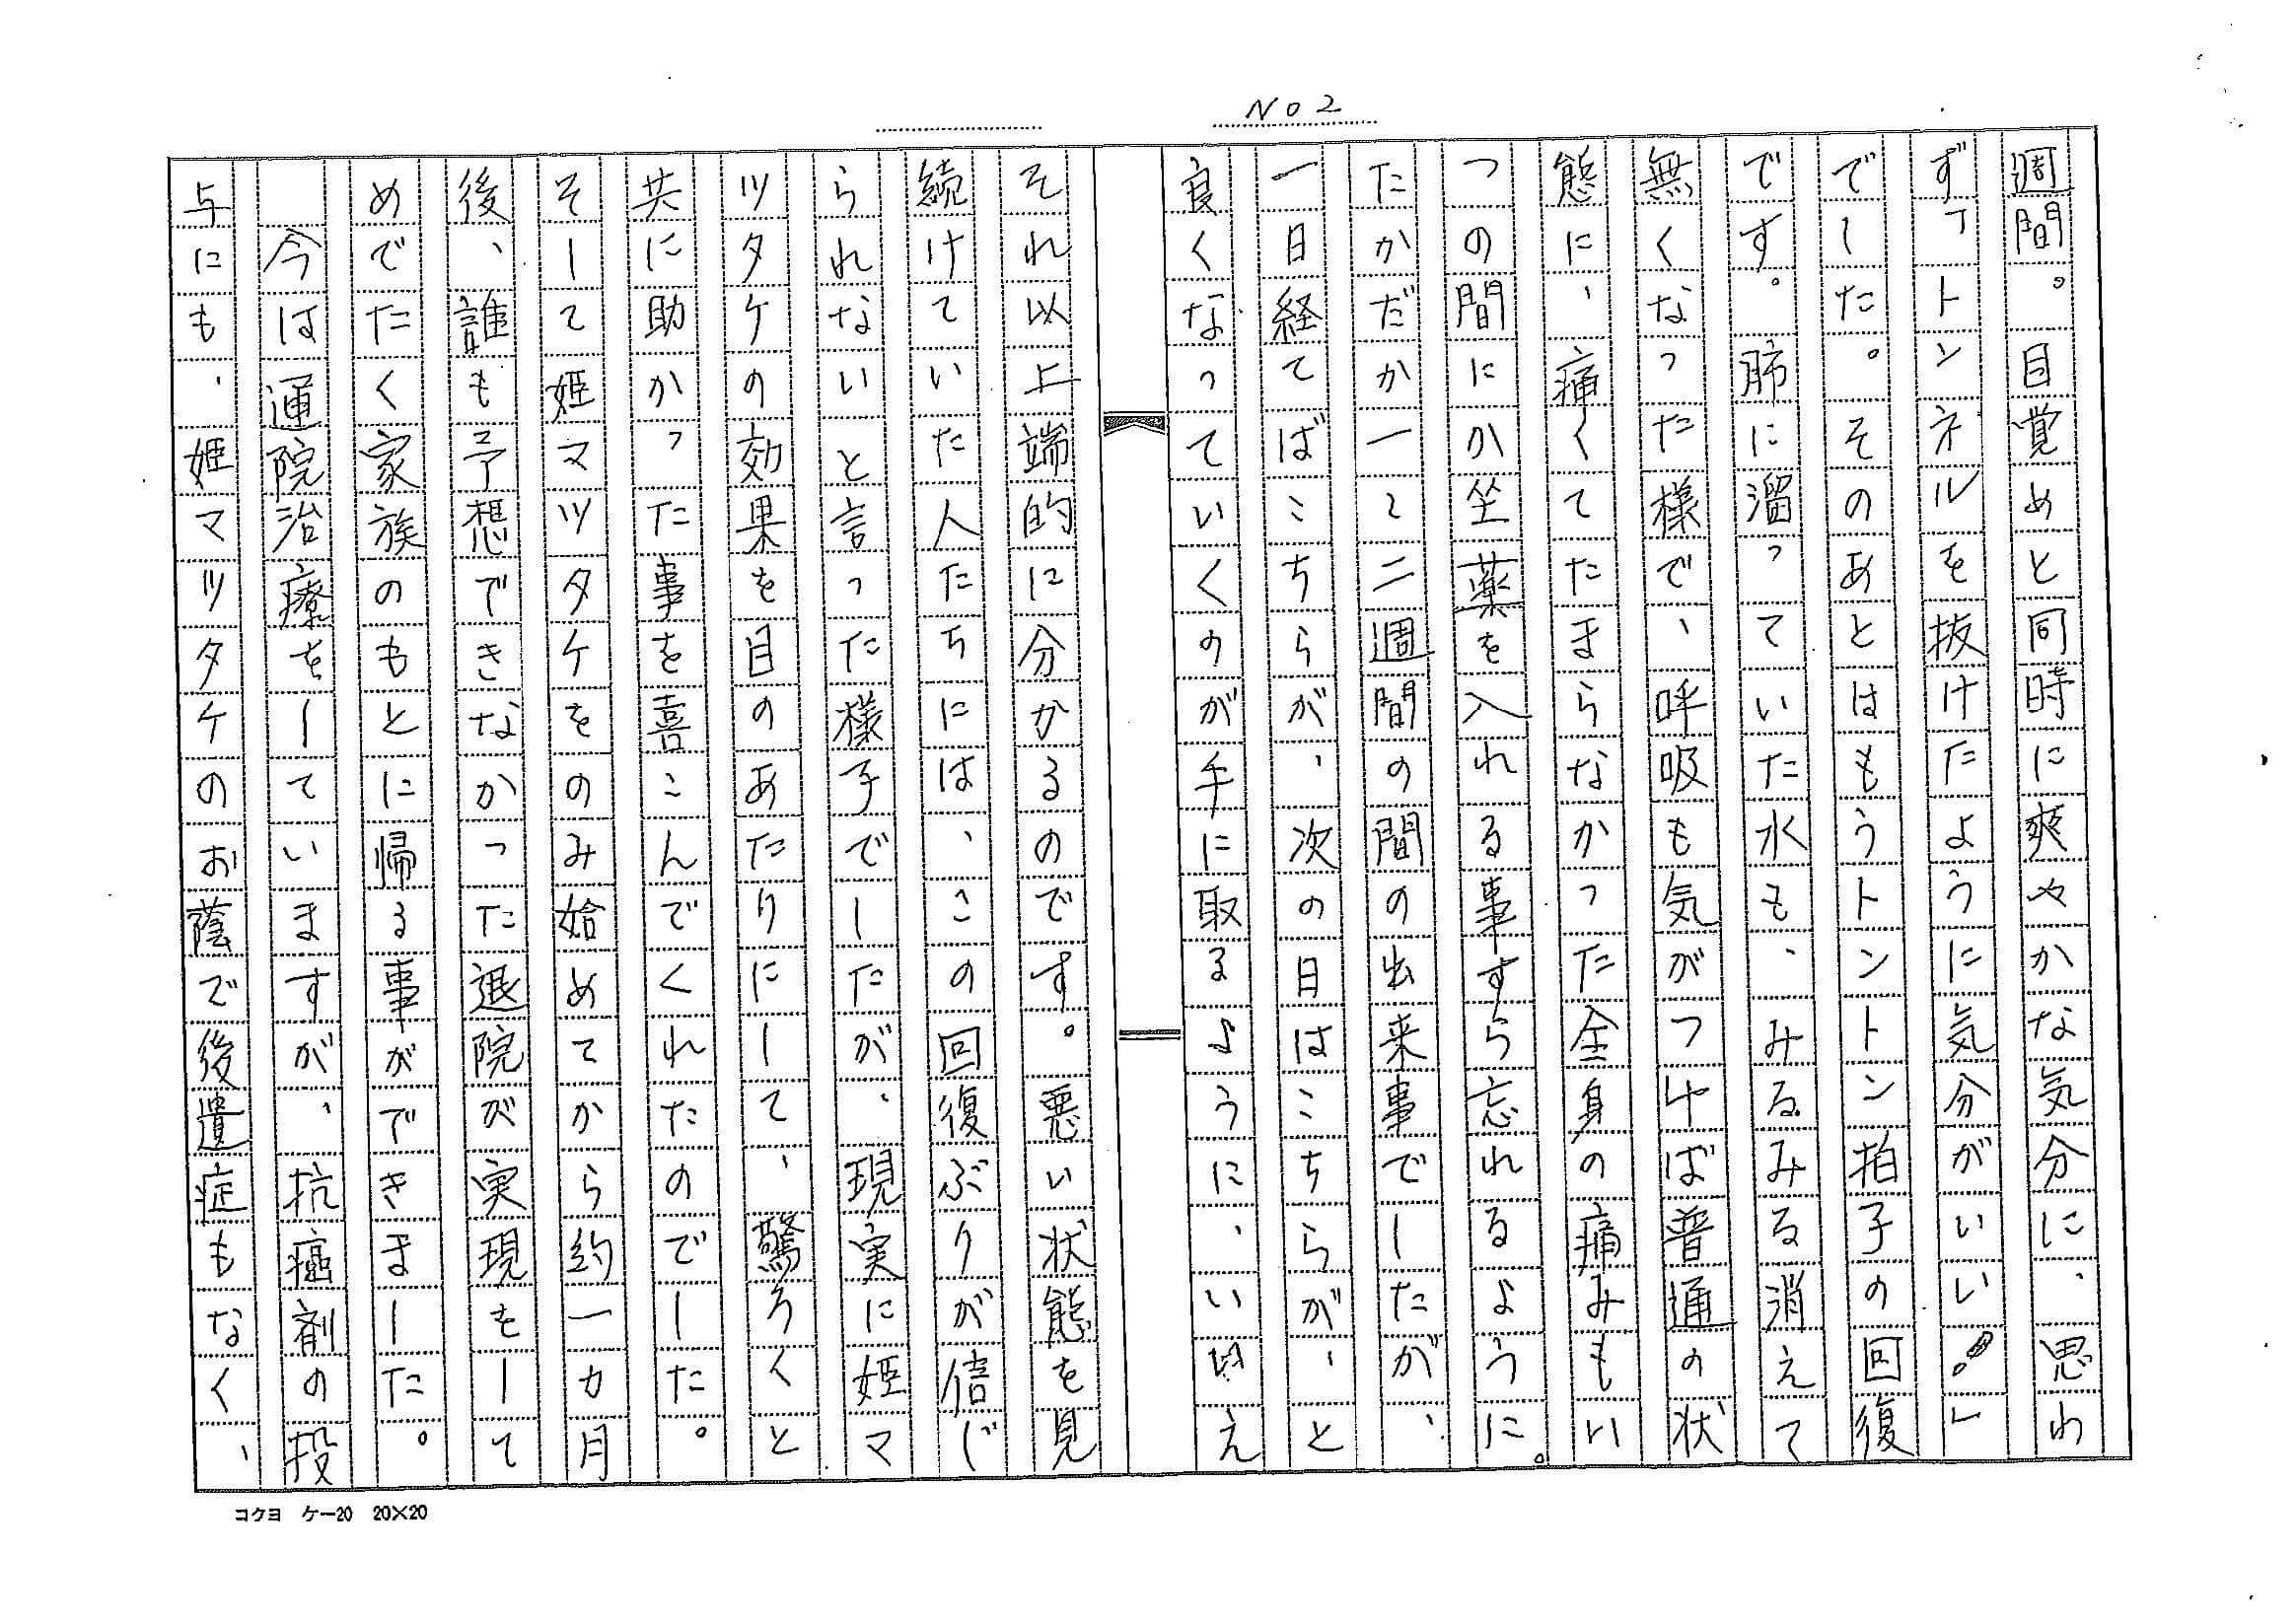 No 2
週間。目覚めと同時に爽やかな気分に、思わ
ず「トンネルを抜けたように気分がいい。」
でした。そのあとはもうトントン拍子の回復
です。肺に溜っていた水も、みるみる消えて
無くなった様で、呼吸も気がつけば普通の状
態に、痛くてたまらなかった全身の痛みもい
つの間にか坐薬を入れる事すら忘れるように。
たかだか一~二週間の間の出来事でしたが、
一日経てばこちらが、次の日はこちらが、と
良くなっていくのが手に取るように、いいえ
それ以上端的に分かるのです。悪い状態を見
続けていた人たちには、この回復ぶりが信じ
られないと言った様子でしたが、現実に姫マ
ツタケの効果を目のあたりにして、驚ろくと
共に助かった事を喜こんでくれたのでした。
そして姫マツタケをのみ始めてから約一カ月
後、誰も予想できなかった退院が実現をして
めでたく家族のもとに帰る事ができました。
今は通院治療をしていますが、抗癌剤の投
与にも、姫マツタケのお蔭で後遺症もなく、
コクヨ ケー20 20×20